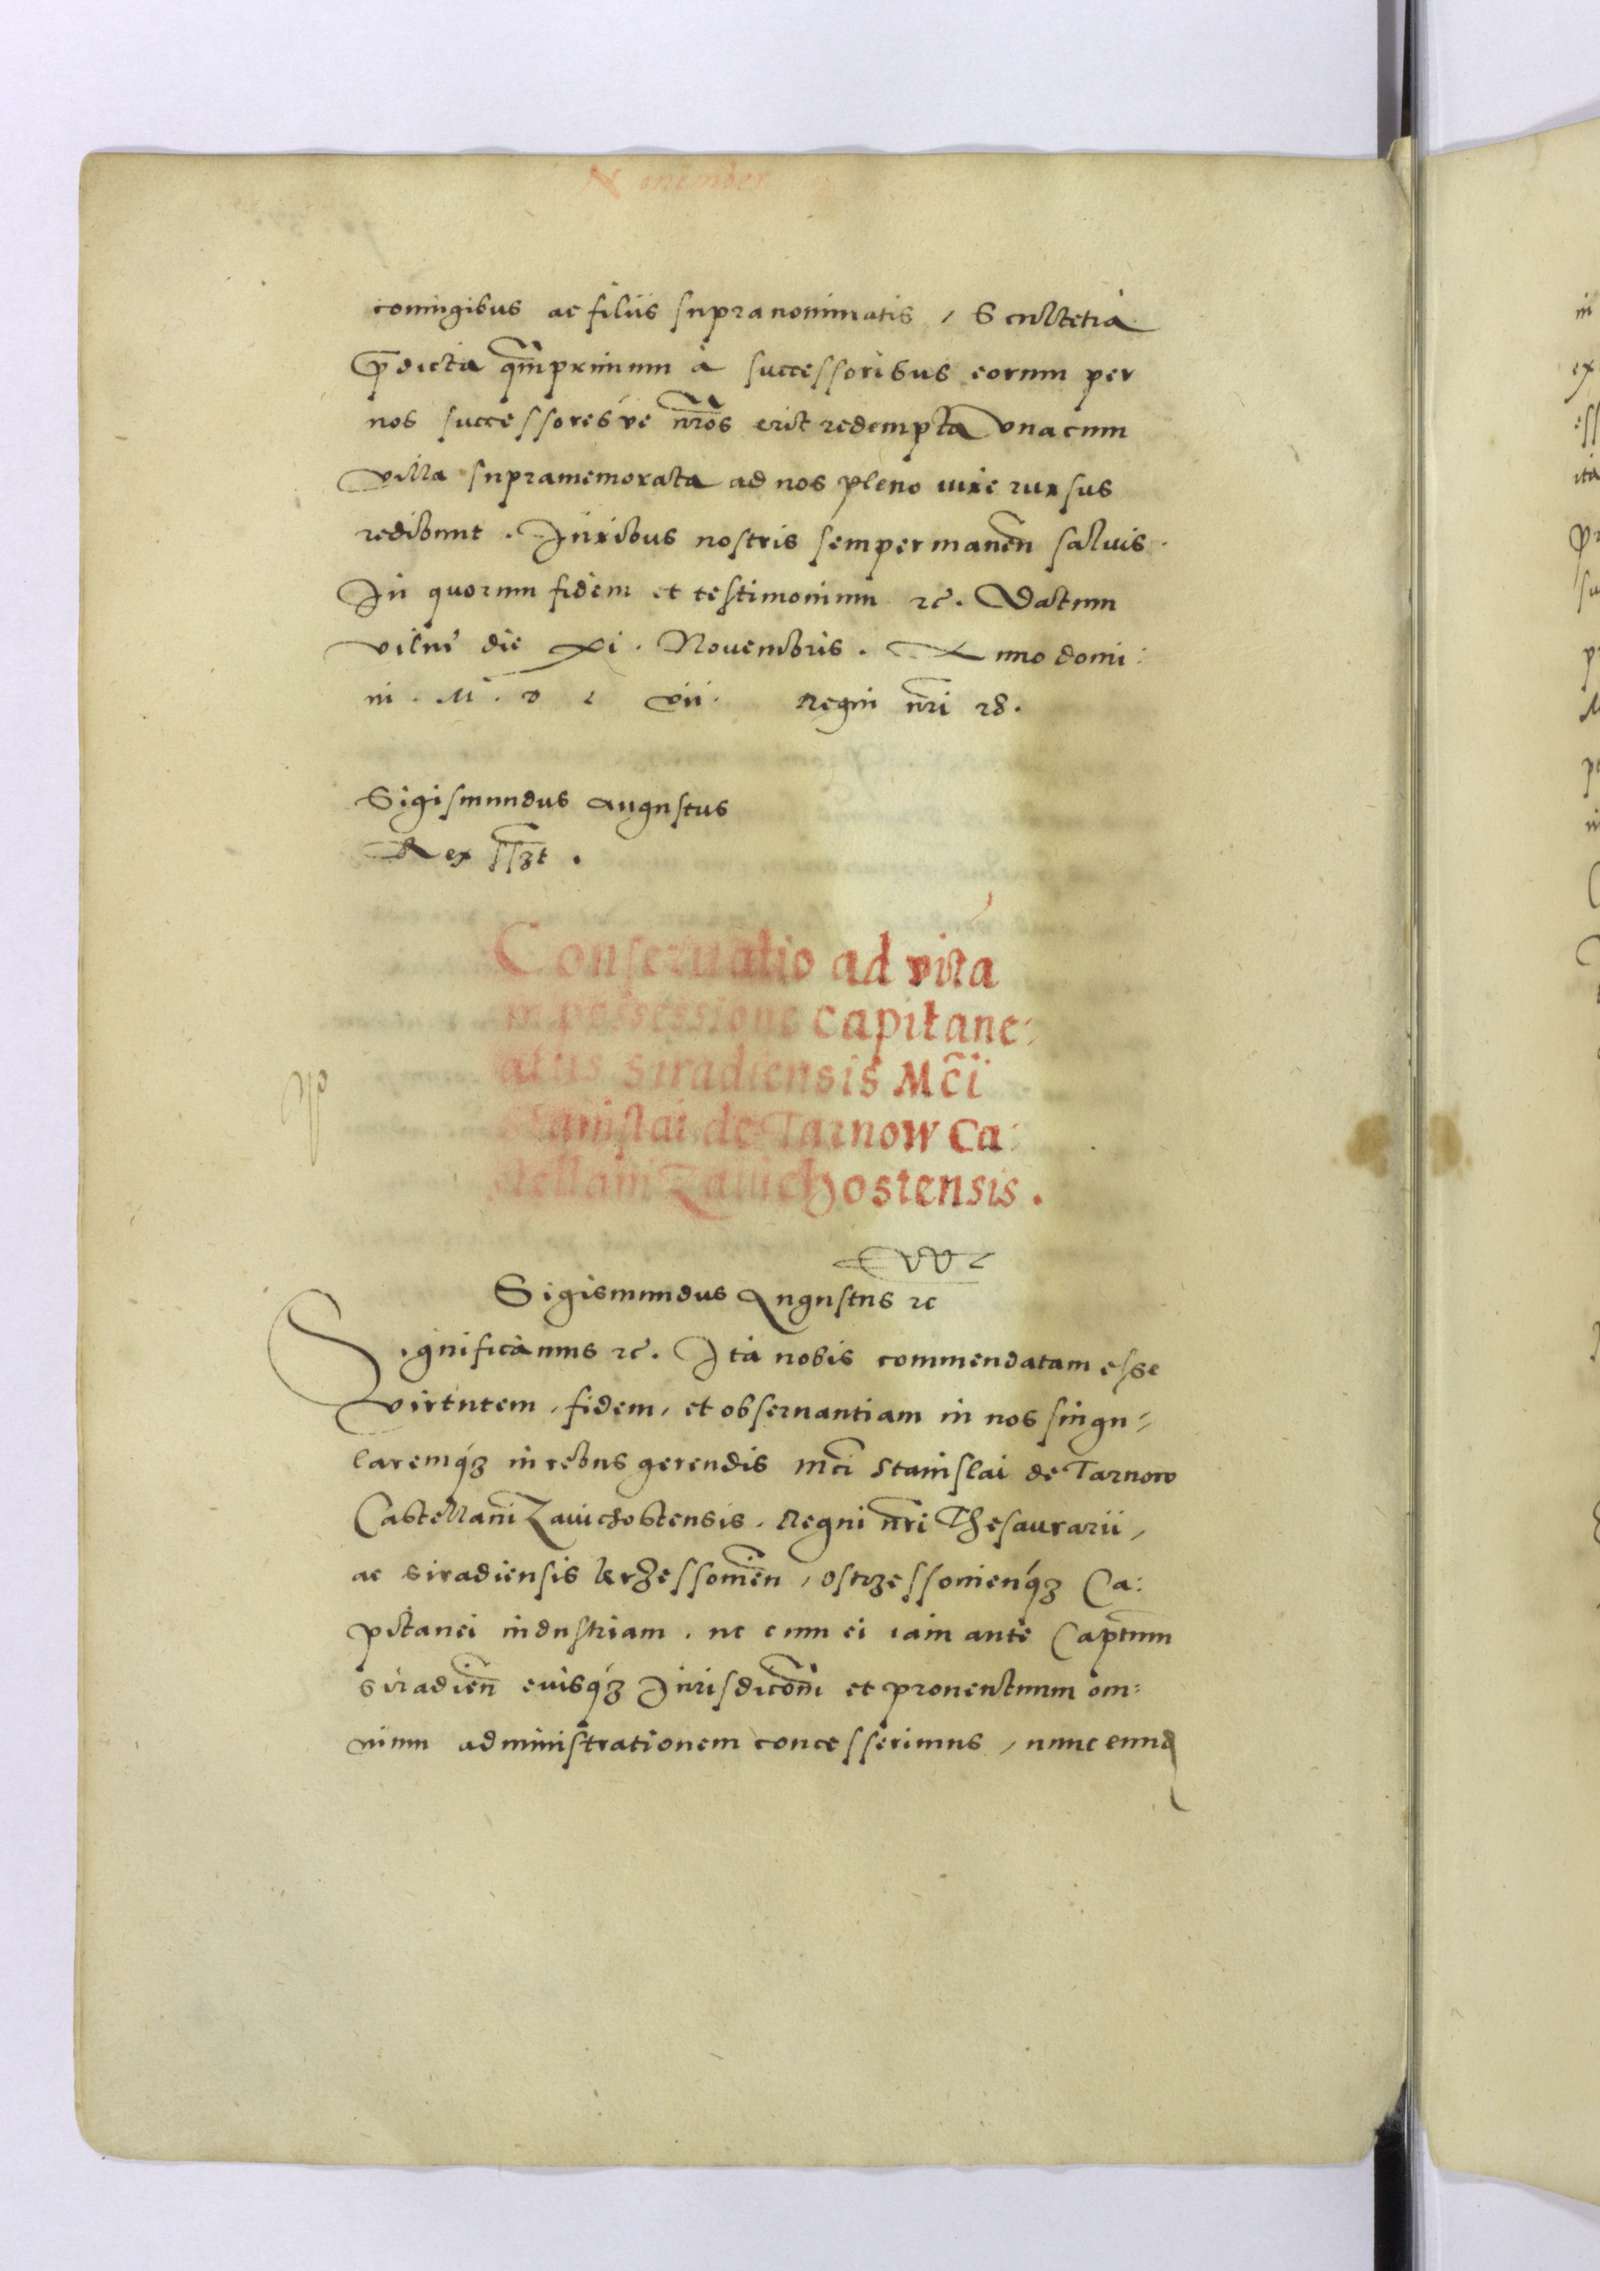 Nouember
coniugibus ac filiis supranominatis, Scultetia
p̄dicta qm̄primum à successoribus eorum per
nos successoresúe nr̄os erit redempta vnacum
villa supramemorata ad nos pleno iure rursus
redibunt. Iuribus nostris semper manen̄ saluis.
In quorum fidem et testimonium ꝛc̄. Datum
vilne die xi. Nouembris. Anno domi:
ni. M. D L vii. Regni nr̄i 28.
Sigismundus Augustus
Rex sszt.
Conseruatio ad vitā
in possessione Capitane:
atus Siradiensis Mc̄i
Stanislai de Tarnow Ca:
stellani Zauichostensis.
Sigismundus Augustus ꝛc
Significamus ꝛc̄. Ita nobis commendatam esse
virtutem, fidem, et obseruantiam in nos singu:
laremq́ꝫ in rebus gerendis Mc̄i Stanislai de Tarnow
Castellani Zauichostensis. Regni nr̄i Thesaurarii,
ac Siradiensis krzessomien̄, Ostrzessouienq́ꝫ Ca:
pitanei industriam. ut cum ei iam ante Capt̄um
Siradien̄ eiusq́ꝫ Iurisdicōni et prouentuum om:
nium administrationem concesserimus, nunc eund